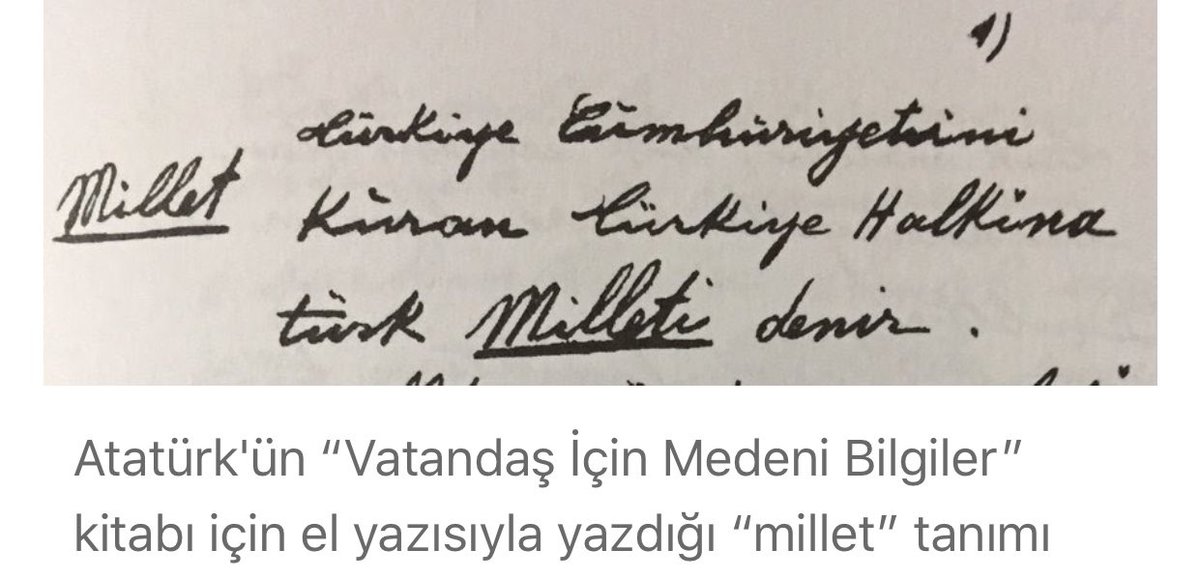 1)
Türkiye Cümhüriyetini
Millet Kuran Türkiye Halkına
türk Milleti denir.
Atatürk'ün “Vatandaş İçin Medeni Bilgiler”
kitabı için el yazısıyla yazdığı “millet” tanımı